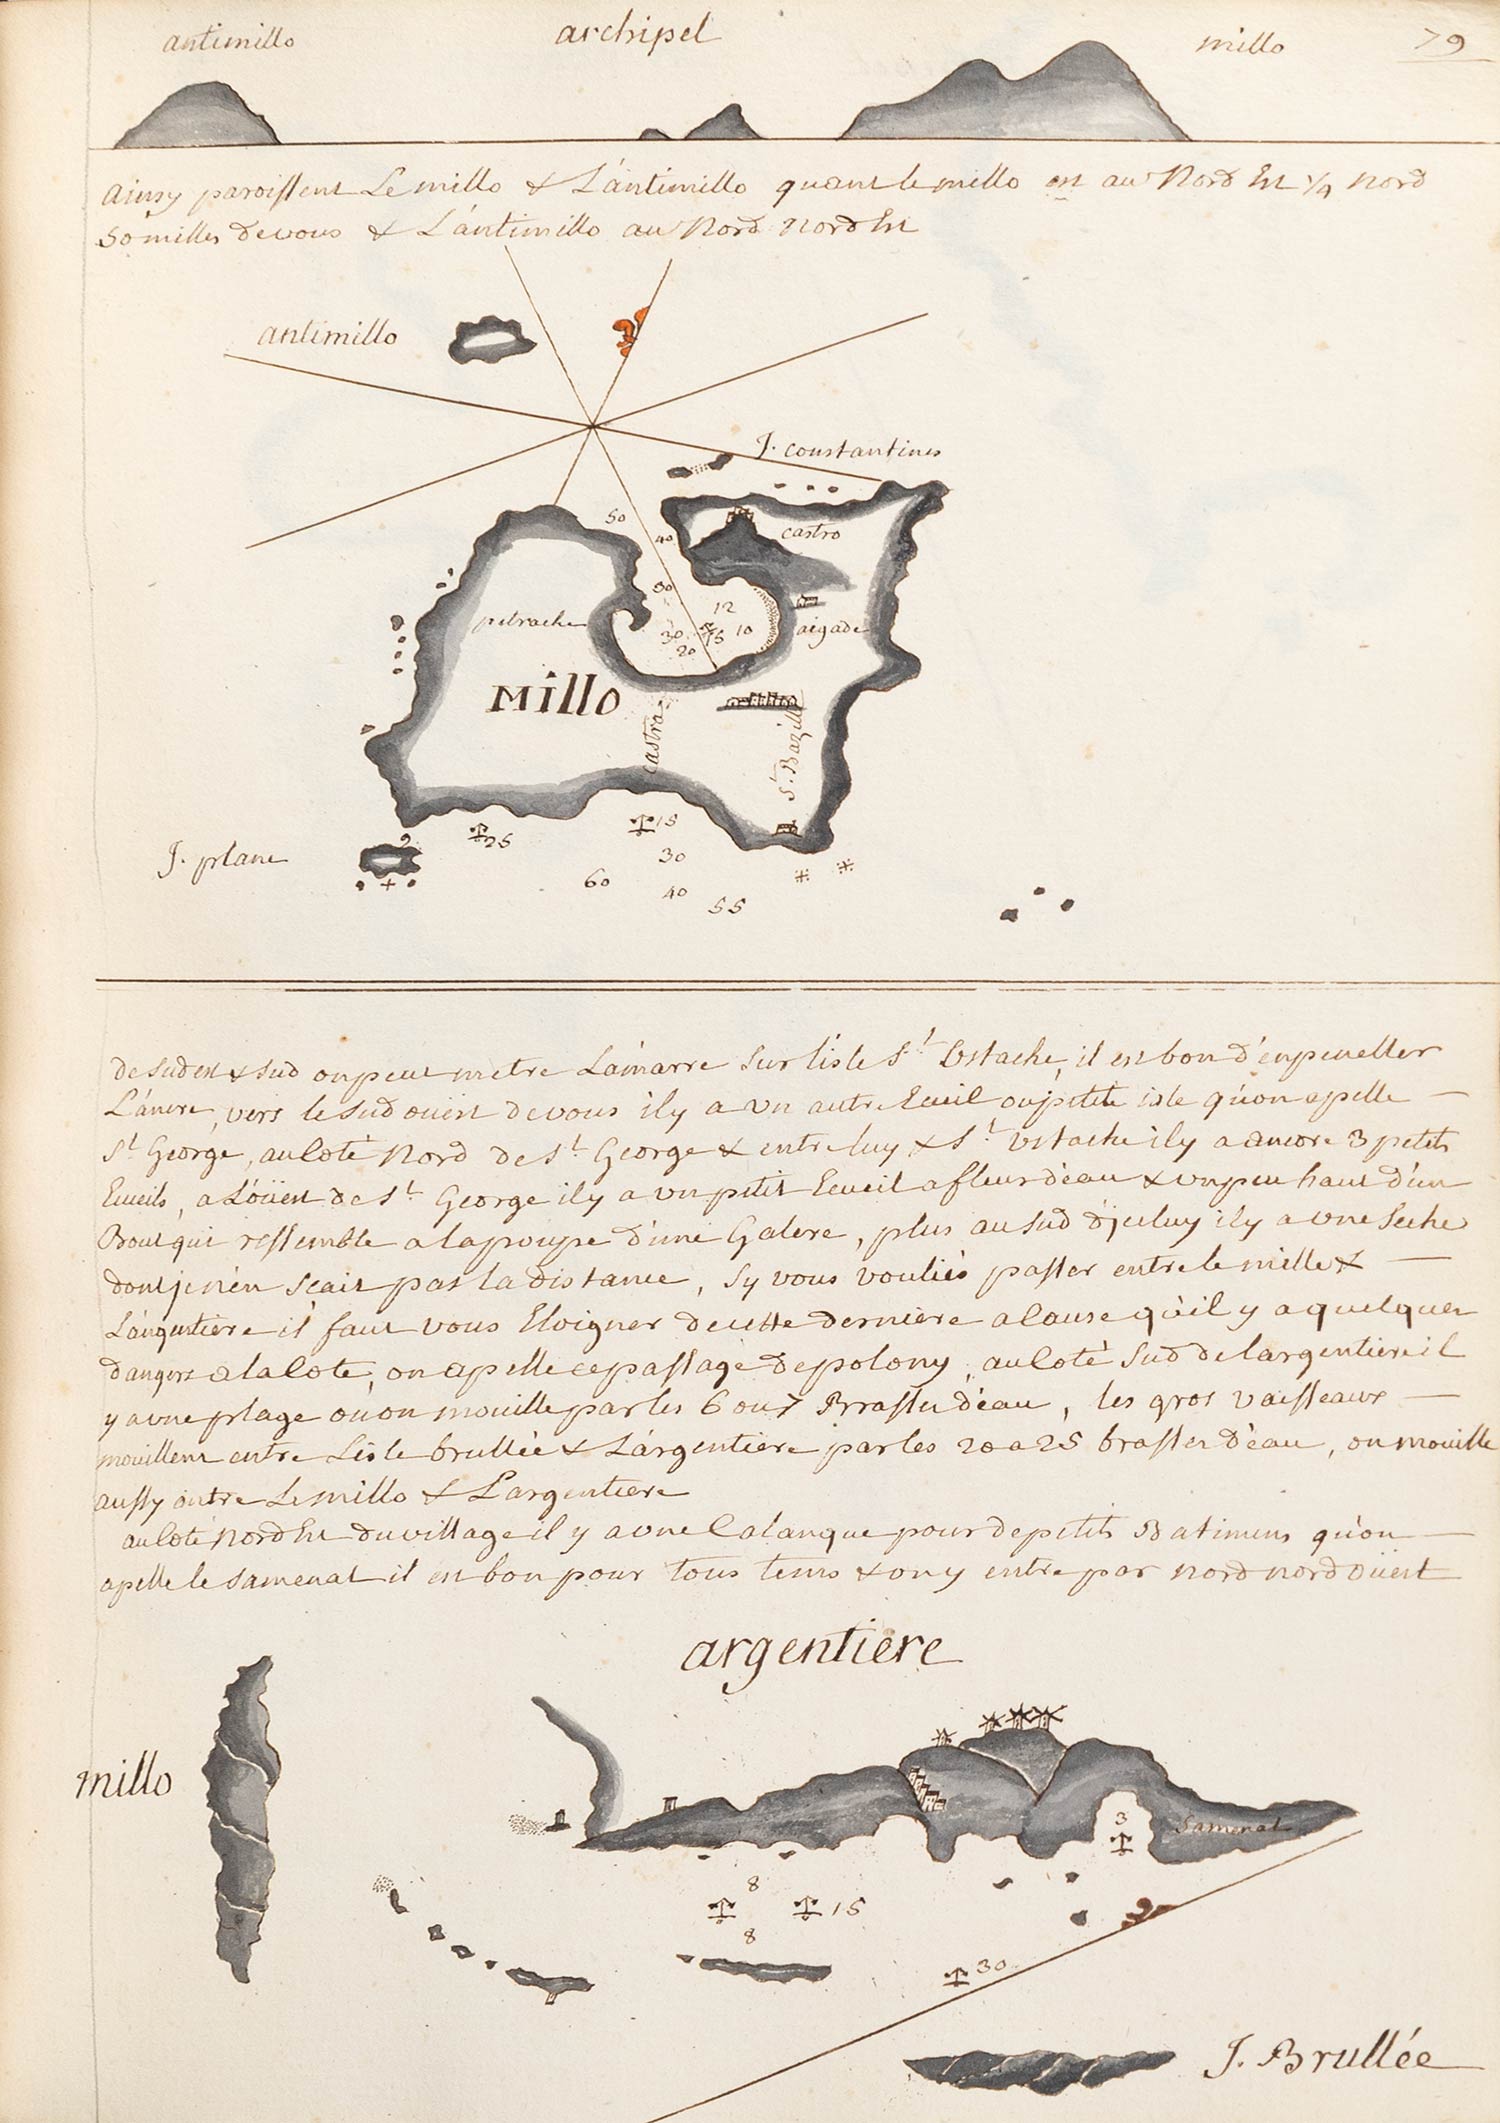 antimillo
archipel
millo
79
ainsy paroissent Le millo & L'antimillo quant le millo est au Nord Est 1/4 Nord
50 milles de vous & L'antimillo au Nord Nord Est
antimillo
J. constantines
50
castro
40
50
12
petrache
30
15
10
aigade
20
Millo
castra
St. Bazille
J. plane
25
15
30
60
40
55
de sudest & sud on peut metre L'amarre sur l'isle St. Ustache, il est bon d'enpeneller
L'ancre, vers le sud ouest de vous il y a un autre Ecueil ou petite isle qu'on apelle
St. George, au coté Nord de St. George & entre luy & St. Ustache il y a ancore 3 petits
Ecueils, a L'oüest de St. George il y a un petit Ecueil a fleur d'eau & un peu haut d'un
Bout qui ressemble a la poupe d'une Galere, plus au sud d'jceluy il y a une seche
dont je n'en sçait pas la distance, sy vous vouliés passer entre le mille &
L'argentiere il faut vous Eloigner de cette derniere a cause qu'il y a quelques
dangers a la cote, on apelle ce passage de polony, au coté sud de largentiere il
y a une plage ou on mouille par les 6 ou 7 Brasses d'eau, les gros vaisseaux
mouillent entre L'isle brullée & L'argentiere par les 20 a 25 brasses d'eau, on mouille
aussy entre Le millo & L'argentiere
au coté Nord Est du village il y a une Calanque pour de petits Batimens qu'on
apelle le samenat il est bon pour tous tems & on y entre par nord nord oüest
argentiere
millo
3
Samenat
8
15
8
30
J. Brullée